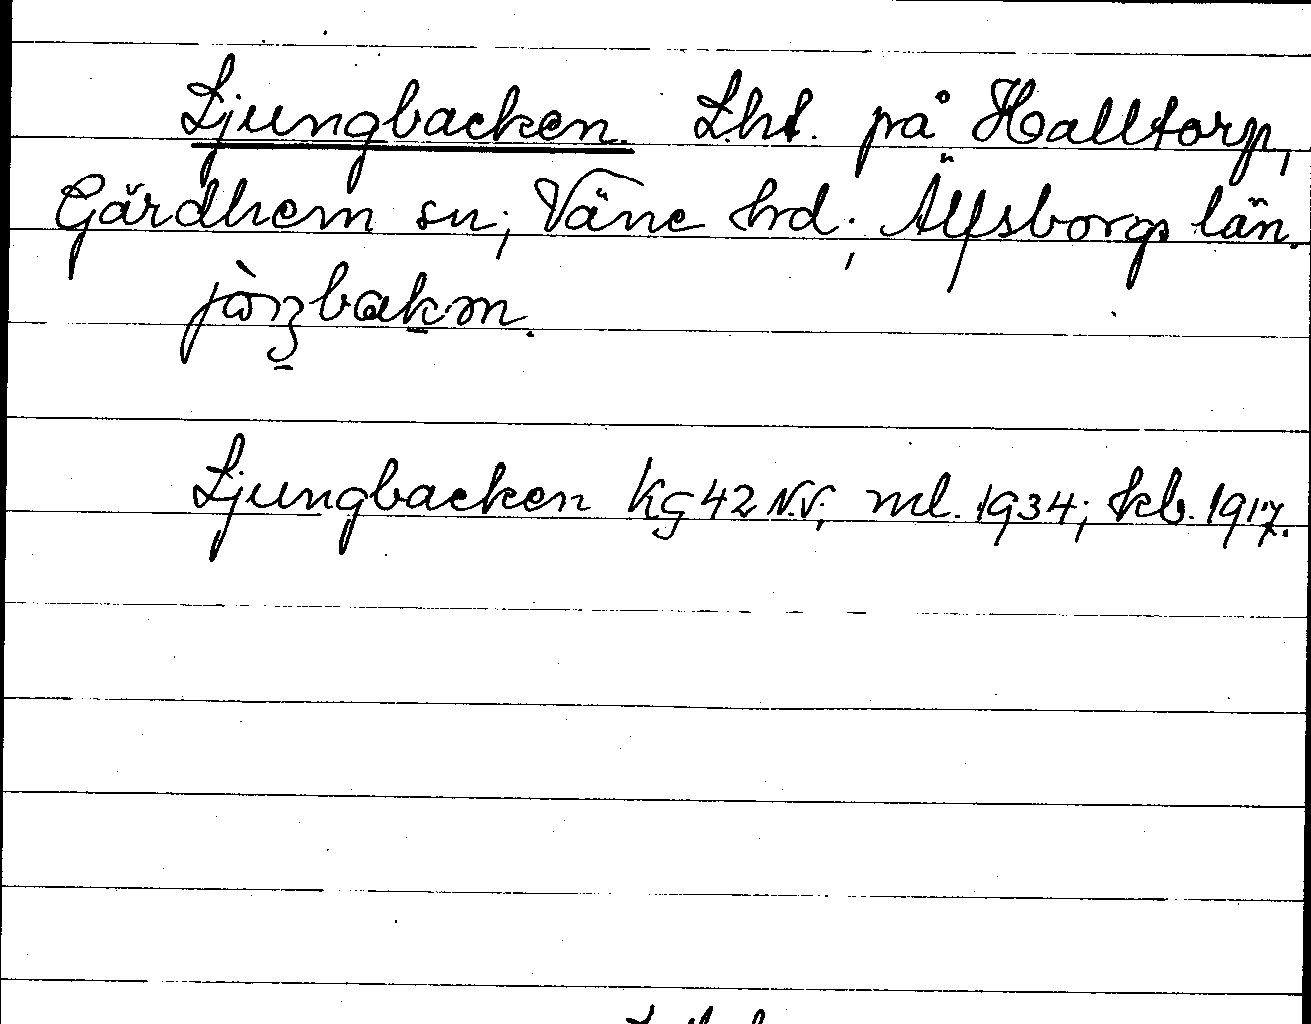 Ljungbacken. Lht. på Halltorp,
Gärdhem sn; Väne hd; Älfsborgs län.
Ljungbacken Kg 42 N.V; ml. 1934; kb. 1917.